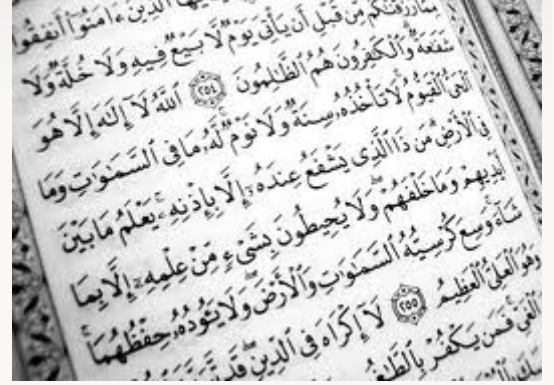 ءَامَنُوٓا۟ أَنفِقُوا۟
مِمَّا رَزَقْنَـٰكُم مِّن قَبْلِ أَن يَأْتِىَ يَوْمٌ لَّا بَيْعٌ فِيهِ وَلَا خُلَّةٌ وَلَا
شَفَـٰعَةٌ وَٱلْكَـٰفِرُونَ هُمُ ٱلظَّـٰلِمُونَ ٢٥٤ ٱللَّهُ لَآ إِلَـٰهَ إِلَّا هُوَ
ٱلْحَىُّ ٱلْقَيُّومُ لَا تَأْخُذُهُۥ سِنَةٌ وَلَا نَوْمٌ لَّهُۥ مَا فِى ٱلسَّمَـٰوَٰتِ وَمَا
فِى ٱلْأَرْضِ مَن ذَا ٱلَّذِى يَشْفَعُ عِندَهُۥٓ إِلَّا بِإِذْنِهِۦ يَعْلَمُ مَا بَيْنَ
أَيْدِيهِمْ وَمَا خَلْفَهُمْ وَلَا يُحِيطُونَ بِشَىْءٍ مِّنْ عِلْمِهِۦٓ إِلَّا بِمَا
شَآءَ وَسِعَ كُرْسِيُّهُ ٱلسَّمَـٰوَٰتِ وَٱلْأَرْضَ وَلَا يَـُٔودُهُۥ حِفْظُهُمَا
وَهُوَ ٱلْعَلِىُّ ٱلْعَظِيمُ ٢٥٥ لَآ إِكْرَاهَ فِى ٱلدِّينِ قَد تَّبَيَّنَ
ٱلْغَىِّ فَمَن يَكْفُرْ بِٱلطَّـٰغُوتِ